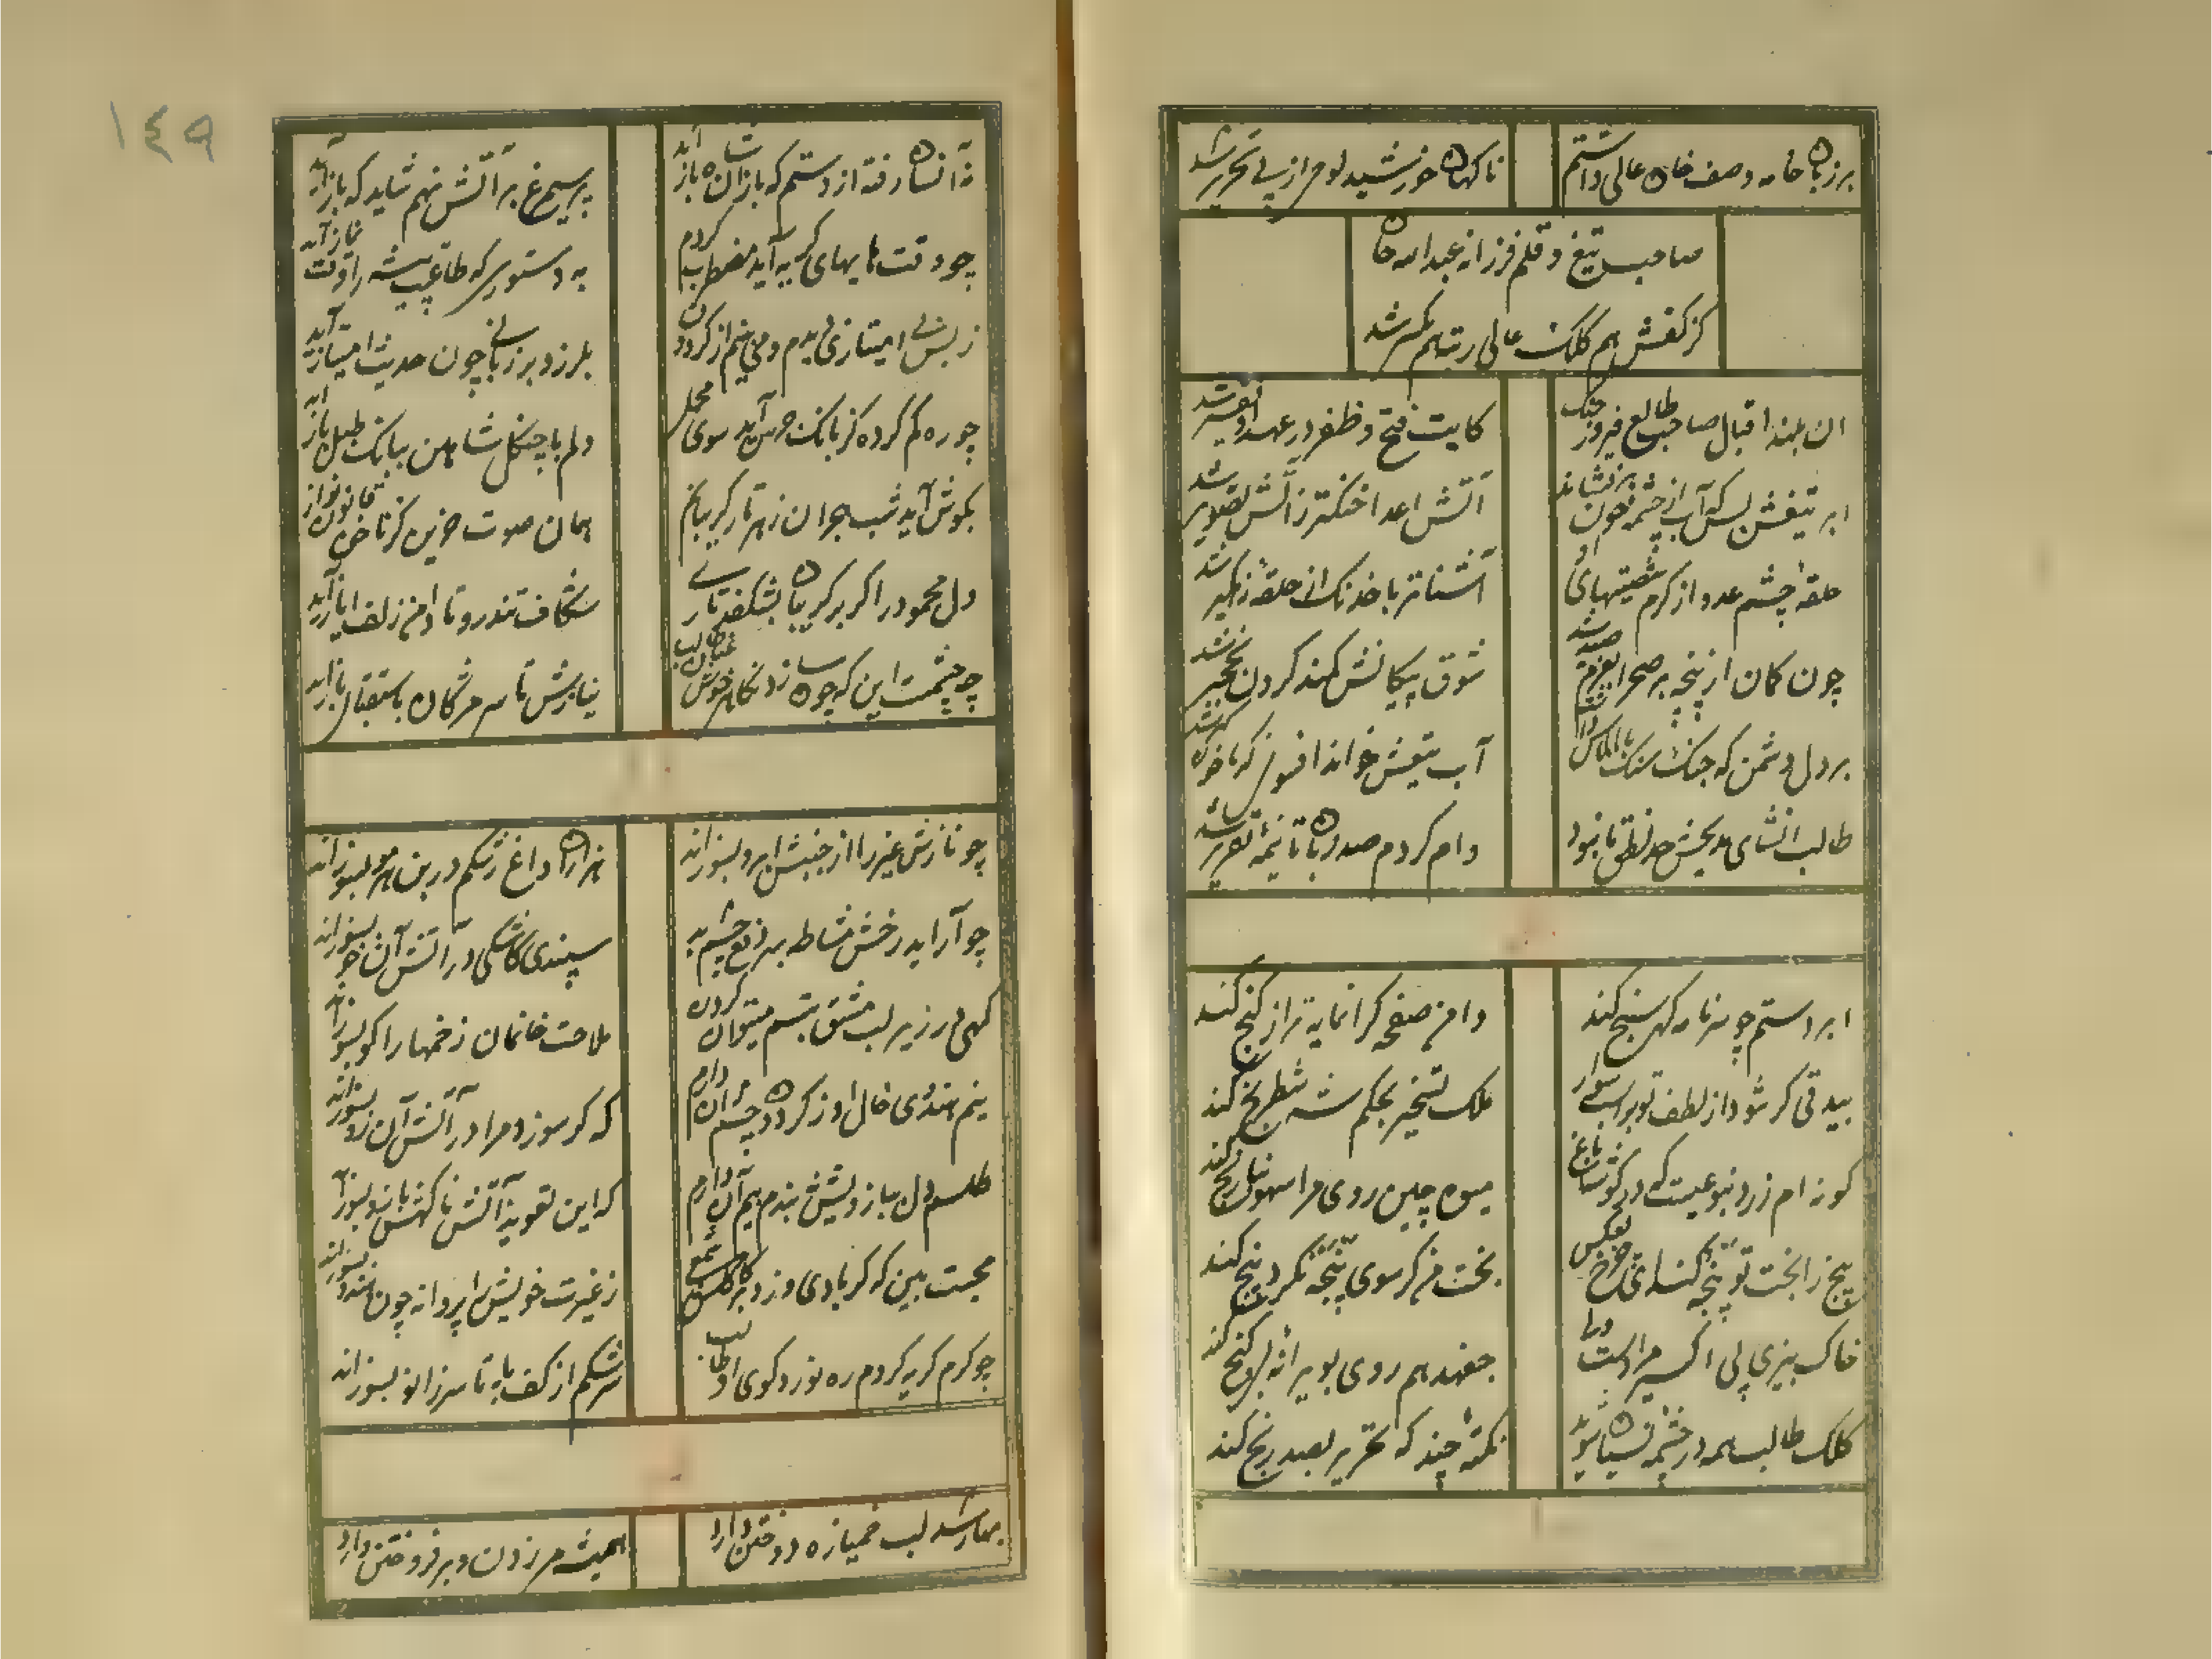 بر زبان خامه وصف خان عالی داشتم
ناکهان خورشید لوحم از پی تحریر شد
صاحب تیغ و قلم فرزانه عبدالله خان
کز کفش هم کلک عالی رتبه هم شمشیر شد
ان بلند اقبال صاحب طالع فیروز جنک
کایت فتح و ظفر در عهد او تفسیر شد
ابر تیغش بسکه آب از چشمه خون برفشاند
آتش اعدا خنکتر ز آتش تصویر شد
حلقه چشم عدو از کرم
آشناتر با خدنک از حلقه زهکیر شد
چون کمان از پنجه بر صحرا بعزم صید شد
شوق پیکانش کمند کردن نخچیر شد
بر دل دشمن که جنک سنک با الماس داشت
آب تیغش خواند افسونی که
طالب انشای مدیحش حد نطق ما نبود
وام کردم صد زبان تا نیمه تقریر شد
ابر دستم چو سر نامه کهر سنج کند
دامن صفحه کرانمایه تر از کنج کند
بیدقی کر شود از لطف تو بر اسب سوار
ملک تسخیر بحکم شه شطرنج کند
کونه ام زرد نبوعیست که در کوشه باغ
میوه چین روی مرا سهو بنارنج کند
پنج را بخت تو پنجه کند
بخت من کر سوی پنجه نکرد پنج کند
خاک بیزی پی اکسیر مرادست
جغد هم روی بویرانه پی کنج کند
کلک طالب همه در چشمه
نکته چند که تحریر بصد رنج کند
نه آنسان رفته از دستم که بازان شاه باز آید
پر سیمرغ بر آتش نهم شاید که باز آید
چو وقت های های کریه آید مضطرب کردم
به دستوری که طاعت پیشه را وقت نماز آید
ز بس بی امتیازی دیدم و می بینم از کردون
بلرزد بر زبانی چون حدیث امتیاز آید
چو ره کم کرده کز بانک جرس آید سوی محمل
دلم با چنکل شاهین ببانک طبل باز آید
بکوش آید شب هجران ز هر تار کریبانم
همان صوت حزین کز ناخن قانون نواز آید
دل محمود را کر بر کریبان بشکفد تاری
شکاف تندرو تا دامن زلف ایاز آید
چه چشمست این که چون سازد نکاهم خوش عنان طالب
نیازش تا سر مژکان باستقبال ناز آید
چو نازش غیر را از جنبش ابرو بسوزاند
هزاران داغ رشکم در بن هر مو بسوزاند
چو آراید رخش مشاطه بهر دفع چشم بد
سپندی کاشکی در آتش آن خو بسوزاند
کهی در زیر لب مشق تبسم میتوان کردن
ملاحت خانمان زخمها را کو بسوزاند
نیم هندوی خال او ز کردون چشم آن دارم
که کر سوزد مرا در آتش آن رو بسوزاند
طلسم دل ببازویش نبندم بیم آن دارم
که این تعویذ آتش ناکهش بازو بسوزاند
محبت بین که کر بادی وزد بر کاکل شمع
ز غیرت خویش را پروانه چون هندو بسوزاند
چو کرم کریه کردم ره نورد کوی او طالب
سرشکم از کف پا تا سر زانو بسوزاند
بهار شد لب خمیازه دوختن دارد
همیشه مر زدن و بر فروختن دارد
۱٤۹